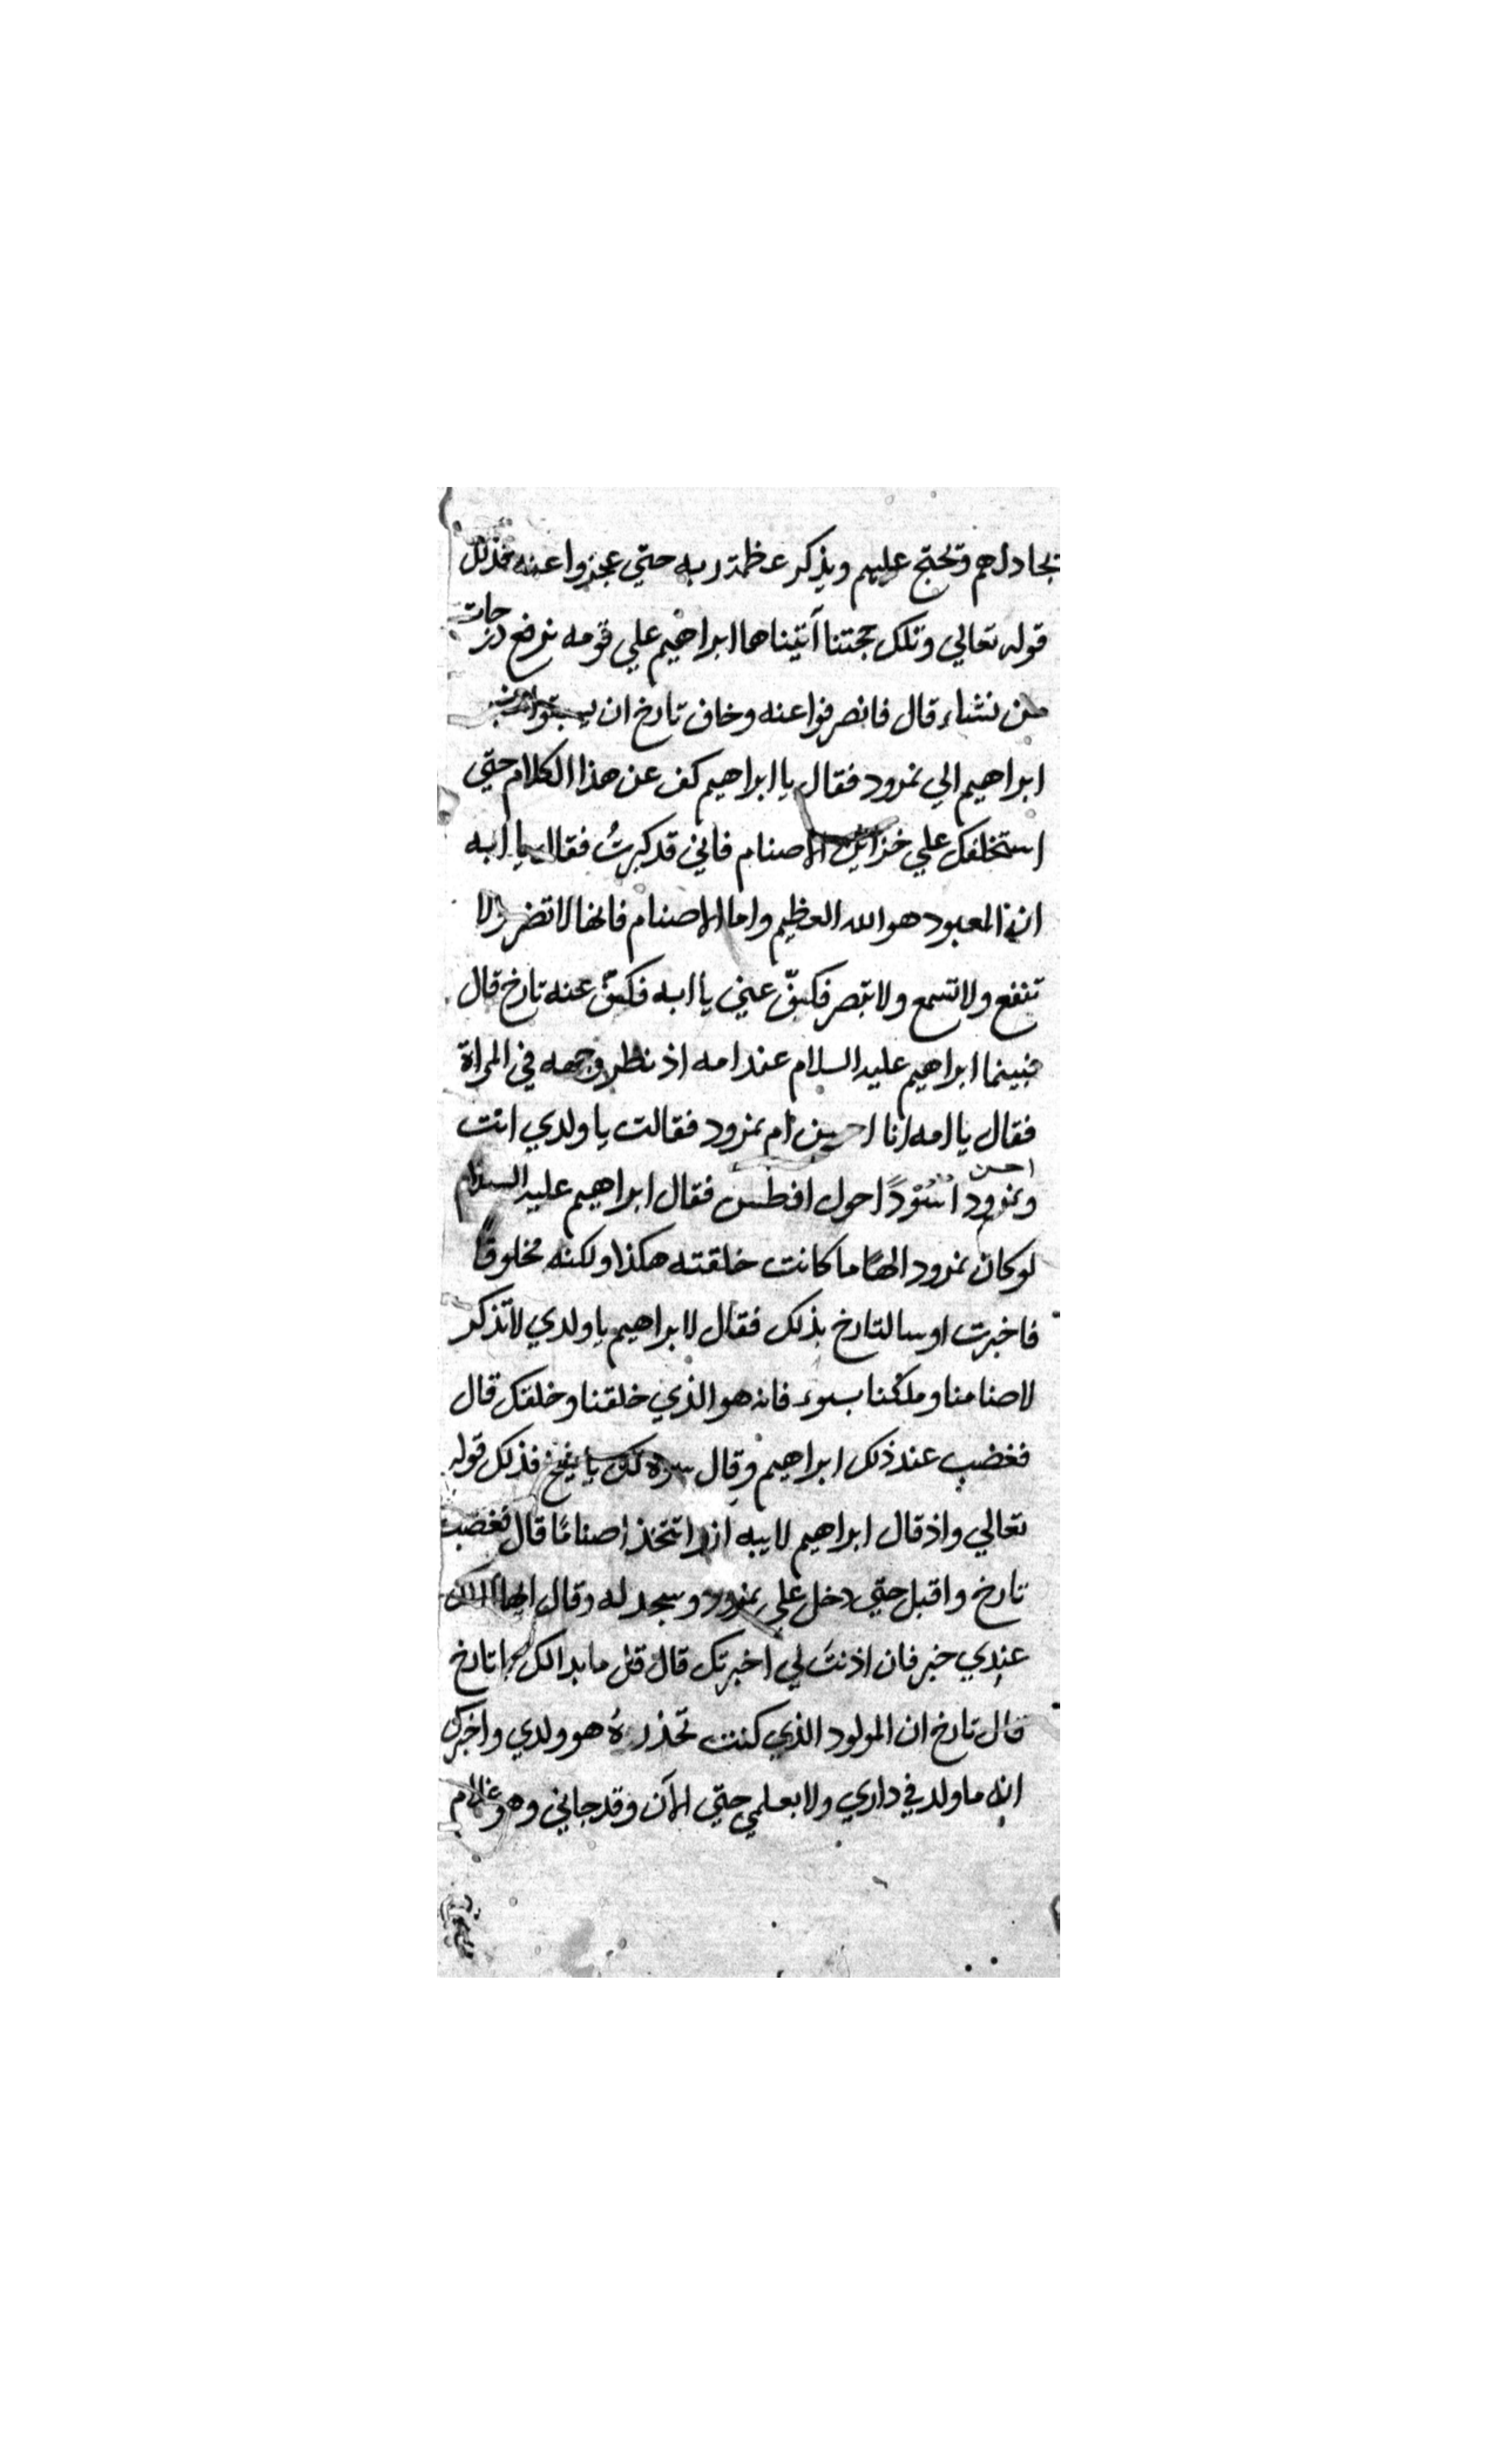 يجادلهم ويحتج عليهم ويذكر عظمة ربه حتي عجزوا عنه فذلك
قوله تعالي وتلك حجتنا آتيناها ابراهيم علي قومه نرفع درجات
من نشاء قال فانصرفوا عنه وخاف تارخ ان
ابراهيم الي نمرود فقال يا ابراهيم كف عن هذا الكلام حتي
استخلفك علي خزاين الاصنام فاني قد كبرتُ فقال يا ابه
ان المعبود هو الله العظيم واما الاصنام فانها لا تضر ولا
تنفع ولا تسمع ولا تبصر فكفّ عني يا ابه فكفّ عنه تارخ قال
فبينما ابراهيم عليه السلام عند امه اذ نظر وجهه في المراة
فقال يا امه انا احسن ام نمرود فقالت يا ولدي انت
احسن
ونمرود اسودًا احول افطس فقال ابراهيم عليه السلام
لو كان نمرود الهًا ما كانت خلقته هكذا ولكنه مخلوقًا
فاخبرت اوسا لتارخ بذلك فقال لابراهيم يا ولدي لا تذكر
لاصنامنا وملكنا بسوء فانه هو الذي خلقنا وخلقك قال
فغضب عند ذلك ابراهيم وقال لك يا فذلك قوله
تعالي واذ قال ابراهيم لابيه ازر اتتخذ اصنامًا قال فغضب
تارخ واقبل حتي دخل علي نمرود وسجد له وقال ايها الملك
عندي خبر فان اذنتَ لي اخبرتك قال قل ما بدا لك يا تارخ
قال تارخ ان المولود الذي كنت تحذرهُ هو ولدي واخبرك
انه ما ولد في داري ولا بعلمي حتي الآن وقد جاني وهو غلام